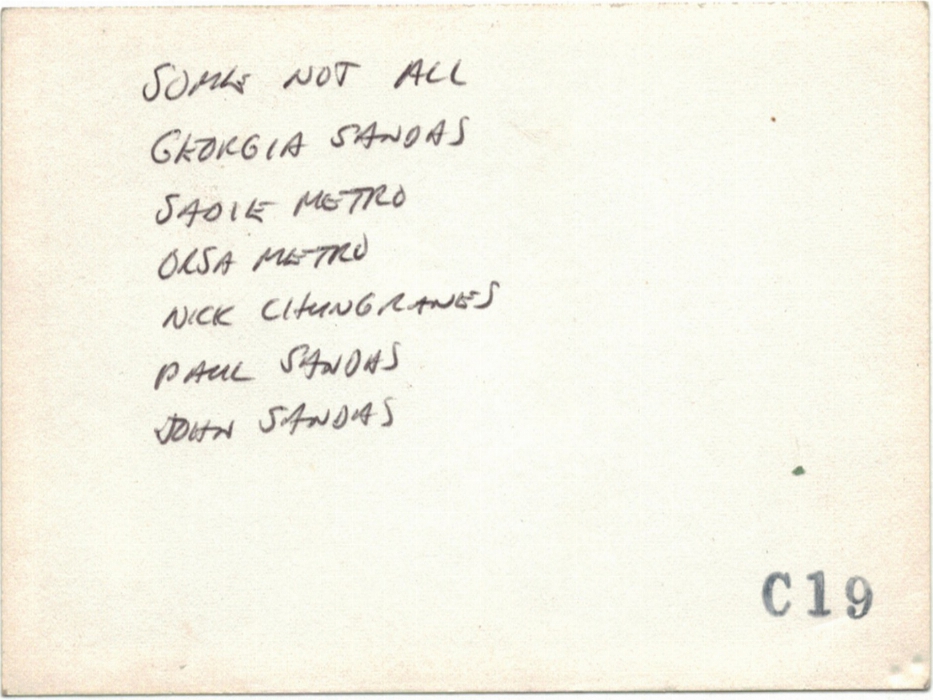 SOME NOT ALL
GEORGIA SANDAS
SADIE METRO
ORSA METRO
NICK CHUNGRANES
PAUL SANDAS
JOHN SANDAS
C19